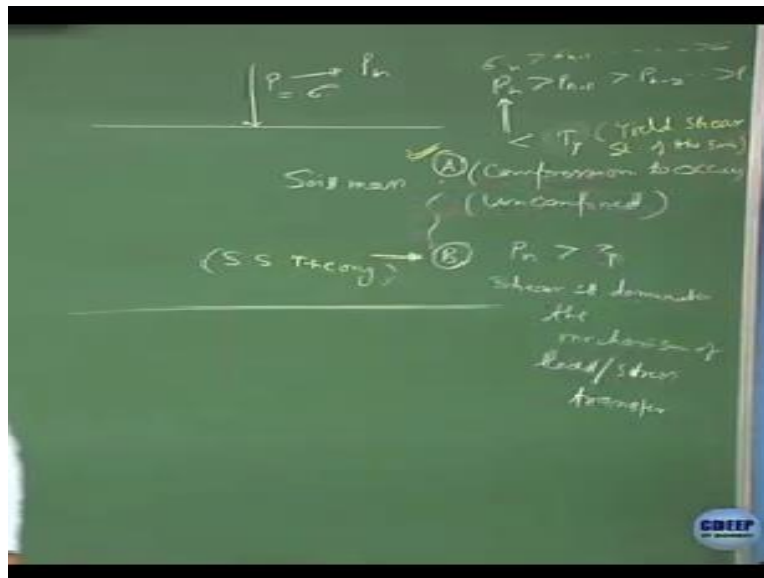 σn > σn-1 ...... >
P → Pn
= σ
Pn > Pn-1 > Pn-2 ... > P
< τy (Yield shear
st. of the soil)
Soil mass
(A) (Compression to occur)
(Unconfined)
(S S Theory) → (B) Pn > τy
Shear st dominates
the
mechanism of
load/stress
transfer
CDEEP